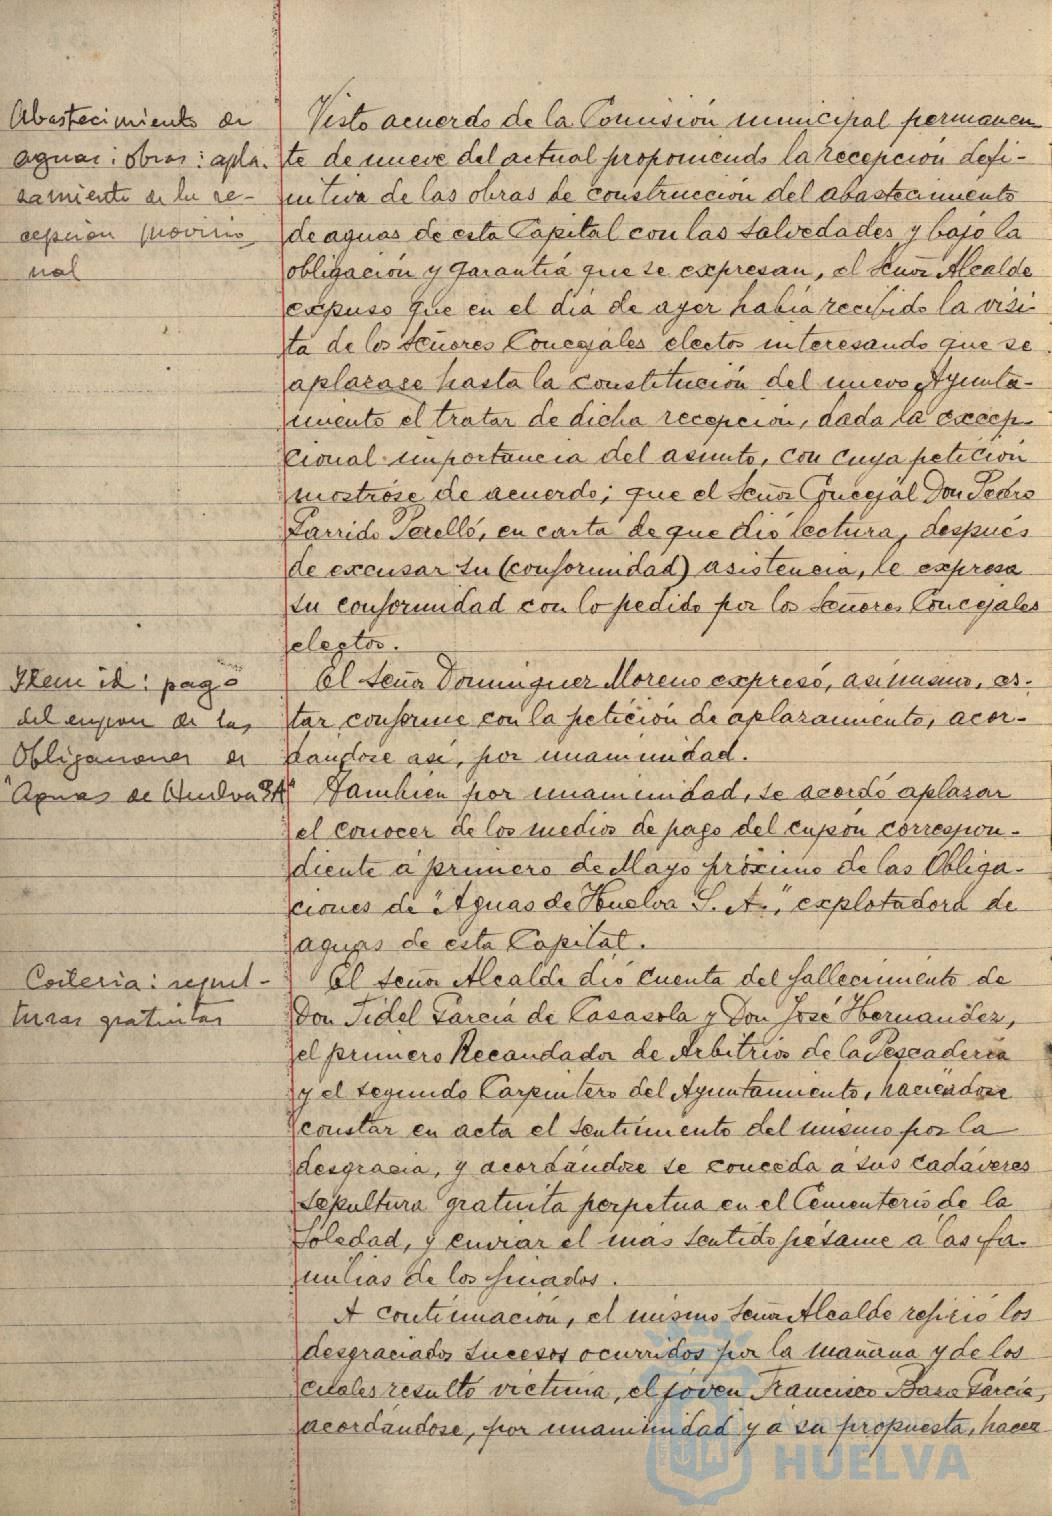 Abastecimiento de
aguas: obras: apla-
zamiento de la re-
cepción provisio-
nal
Visto acuerdo de la Comisión municipal permanen-
te de nueve del actual proponiendo la recepción defi-
nitiva de las obras de construcción del abastecimiento
de aguas de esta Capital con las salvedades y bajo la
obligación y garantía que se expresan, el Señor Alcalde
expuso que en el día de ayer había recibido la visi-
ta de los Señores Concejales electos interesando que se
aplazase hasta la constitución del nuevo Ayunta-
miento el tratar de dicha recepción, dada la excep-
cional importancia del asunto, con cuya petición
mostróse de acuerdo; que el Señor Concejal Don Pedro
Garrido Perelló, en carta de que dió lectura, después
de excusar su (conformidad) asistencia, le expresa
su conformidad con lo pedido por los Señores Concejales
electos.
Item id: pago
del cupon de las
Obligaciones de
"Aguas de Huelva S.A"
El Señor Dominguez Moreno expresó, asimismo, es-
tar conforme con la petición de aplazamiento, acor-
dandose así, por unanimidad.
También por unanimidad, se acordó aplazar
el conocer de los medios de pago del cupón correspon-
diente á primero de Mayo próximo de las Obliga-
ciones de "Aguas de Huelva S. A.", explotadora de
aguas de esta Capital.
Cortesia: sepul-
turas gratuitas
El señor Alcalde dió cuenta del fallecimiento de
Don Fidel García de Casasola y Don José Hernandez,
el primero Recaudador de Arbitrios de la Pescadería
y el segundo Carpintero del Ayuntamiento, haciéndose
constar en acta el sentimiento del mismo por la
desgracia, y acordándose se conceda á sus cadáveres
sepultura gratuita perpetua en el Cementerio de la
Soledad, y enviar el más sentido pésame á las fa-
milias de los finados.
A continuación, el mismo Señor Alcalde refirió los
desgraciados sucesos ocurridos por la mañana y de los
cuales resultó victima, el joven Francisco Baza García,
acordándose, por unanimidad y á su propuesta, hacer
HUELVA